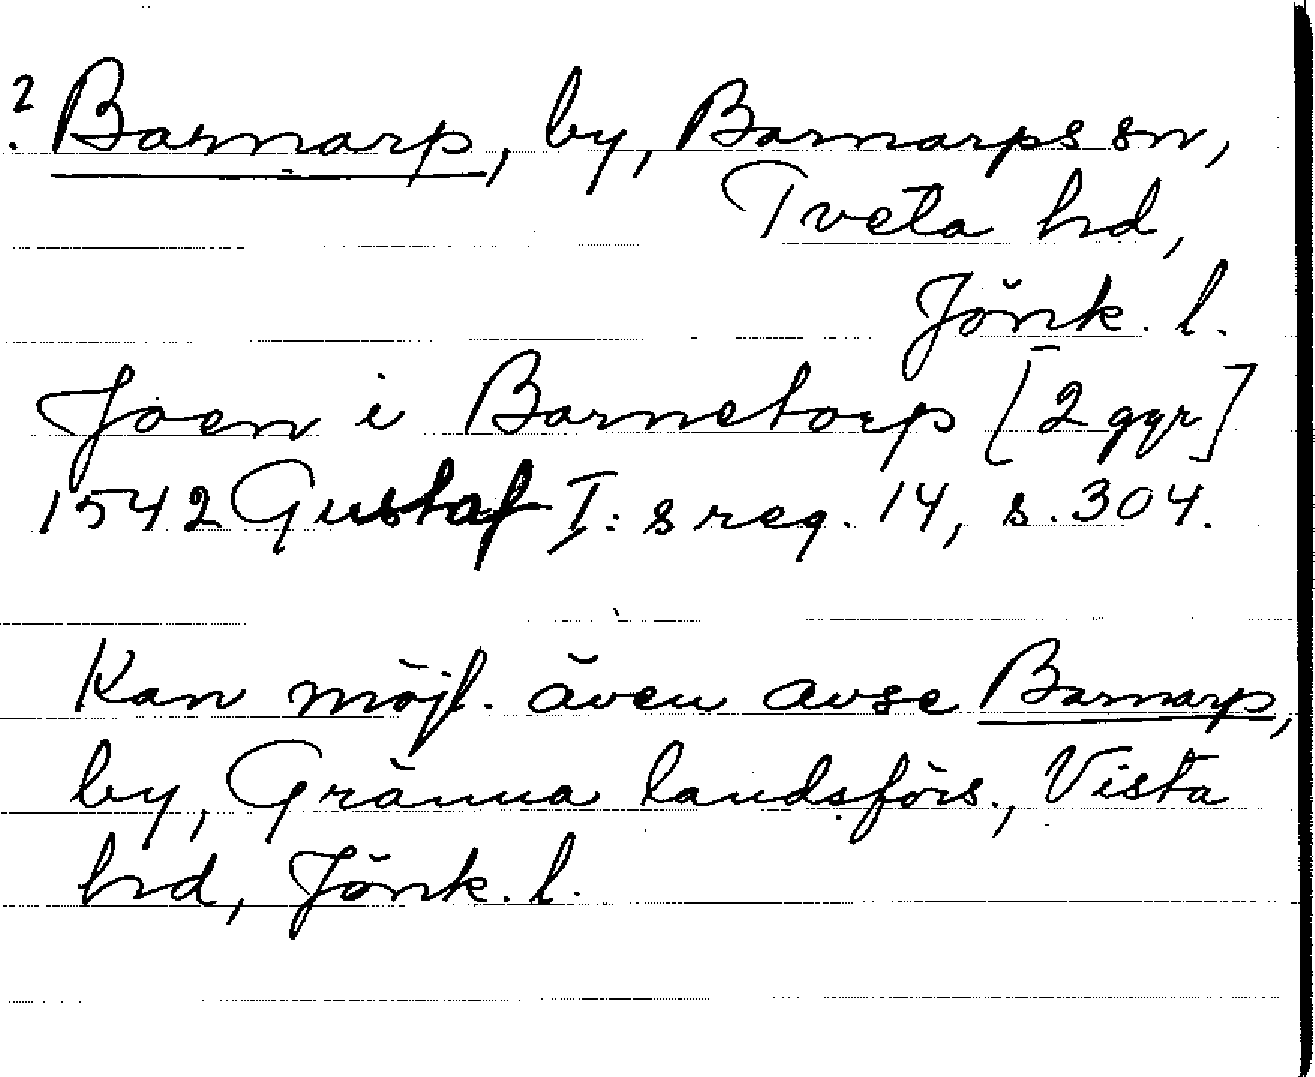 ? Barnarp, by, Barnarps sn,
Tveta hd,
Jönk. l.
Joen i Barnetorp [2 ggr]
1542 Gustaf I:s reg. 14, s. 304.
Kan möjl. även avse Barnarp,
by, Gränna landsförs., Vista
hd, Jönk. l.